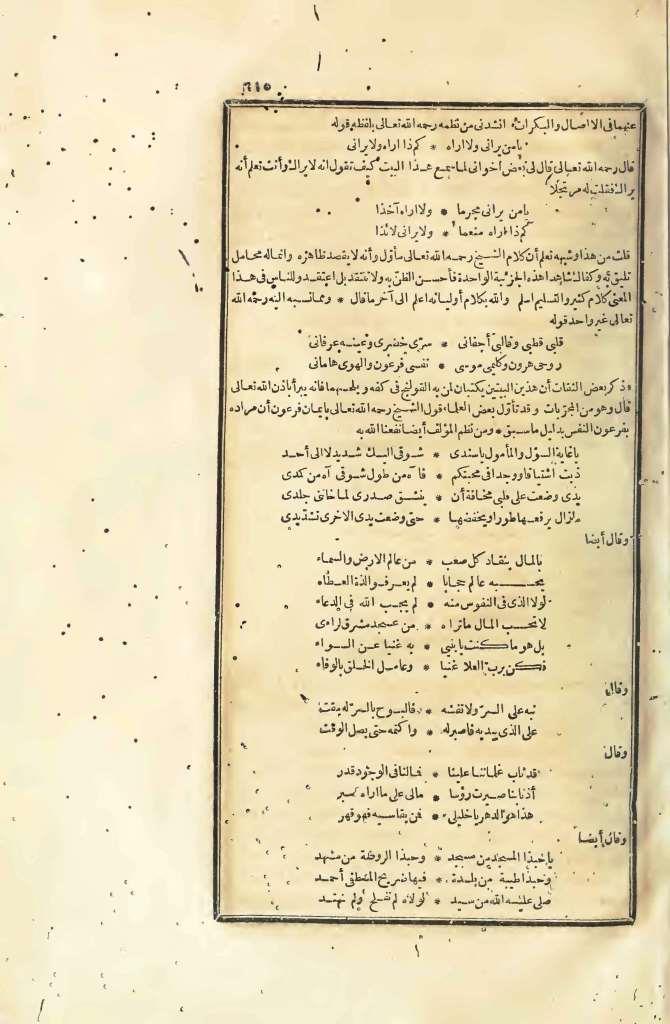 ٦١٥
عنهما في الآصال والبكرات، أنشدني من نظمه رحمه الله تعالى بلفظه قوله
يا من يراني ولا أراه * كم ذا أراه ولا يراني
قال رحمه الله تعالى قال لي بعض اخواني لما سمع هذا البيت كيف تقول انه لا يراك وأنت تعلم أنه
يراك فقلت له مرتجلا
يا من يراني مجرما * ولا أراه آخذا
كم ذا أراه منعما * ولا يراني لائذا
قلت من هذا وشبهه تعلم أن كلام الشيخ رحمه الله تعالى مأول وأنه لا يقصد ظاهره وانما له محامل
تليق به وكفاك شاهدا هذه الجزئية الواحدة فأحسن الظن به ولا تنتقد بل اعتقد وللناس في هذا
المعنى كلام كثير والتسليم أسلم والله بكلام أوليائه اعلم الى آخر ما قال * ومما نسبه اليه رحمه الله
تعالى غير واحد قوله
قلبي قطبي وقالبي أجفاني * سري خضري وعينه عرفاني
روحي هرون وكليمي موسى * نفسي فرعون والهوى هاماني
وذكر بعض الثقات أن هذين البيتين يكتبان لمن به القولنج في كفه ويلحسهما فانه يبرأ باذن الله تعالى
قال وهو من المجربات وقد تأول بعض العلماء قول الشيخ رحمه الله تعالى بايمان فرعون أن مراده
بفرعون النفس بدليل ما سبق * ومن نظم المؤلف أيضا نفعنا الله به
يا غاية السؤل والمأمول يا سندي * شوقي اليك شديد لا الى أحد
ذبت اشتياقا ووجدا في محبتكم * فآه من طول شوقي آه من كمدي
يدي وضعت على قلبي مخافة أن * ينشق صدري لما خانني جلدي
ما زال يرفعها طورا ويخفضها * حتى وضعت يدي الاخرى تشد يدي
وقال أيضا
بالمال ينقاد كل صعب * من عالم الارض والسماء
يحسبه عالم حجابا * لم يعرفوا لذة العطاء
لولا الذي في النفوس منه * لم يجب الله في الدعاء
لا تحسب المال ما تراه * من عسجد مشرق لرائي
بل هو ما كنت يا بنيي * به غنيا عن السواء
فكن برب العلا غنيا * وعامل الخلق بالوفاء
وقال
نبه على السر ولا تفشه * فالبوح بالسر له مقت
على الذي يبديه فاصبر له * واكتمه حتى يصل الوقت
وقال
قد ثاب غلماننا علينا * فما لنا في الوجود قدر
أذنابنا صيرت رؤسا * مالي على ما أراه صبر
هذا هو الدهر يا خليلي * فمن يقاسيه فهو قهر
وقال أيضا
يا حبذا المسجد من مسجد * وحبذا الروضة من مشهد
وحبذا طيبة من بلدة * فيها ضريح المصطفى أحمد
صلى عليه الله من سيد * لولاه لم نفلح ولم نهتد